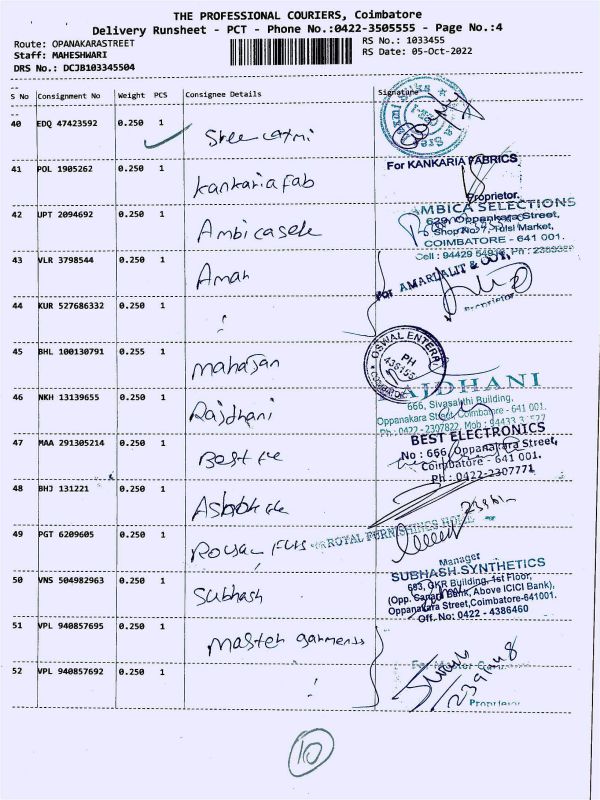 THE PROFESSIONAL COURIERS, Coimbatore
Delivery Runsheet - PCT - Phone No.:0422-3505555 - Page No.:4
Route: OPANAKARASTREET RS No.: 1033455
Staff: MAHESHWARI RS Date: 05-Oct-2022
DRS No.: DCJB103345504
S No Consignment No Weight PCS Consignee Details Signature
40 EDQ 47423592 0.250 1 Sree Laxmi
41 POL 1905262 0.250 1 Kankaria fab
For KANKARIA FABRICS
Proprietor.
42 UPT 2094692 0.250 1 Ambica sele
AMBICA SELECTIONS
629, Oppankara Street,
Shop No. 7, Tulsi Market,
COIMBATORE - 641 001.
43 VLR 3798544 0.250 1 Aman
For AMAR
Proprietor
44 KUR 527686332 0.250 1
45 BHL 100130791 0.255 1 mahajan
OSWAL ENTERP
PH
COIMBATORE
46 NKH 13139655 0.250 1 Rajdhani
RAJDHANI
666, Sivasakthi Building,
Oppanakara Street, Coimbatore - 641 001.
Ph : 0422 - 2307822, Mob : 94433
47 MAA 291305214 0.250 1 Best ele
BEST ELECTRONICS
No : 666, Oppanakara Street,
Coimbatore - 641 001.
Ph : 0422-2307771
48 BHJ 131221 0.250 1
49 PGT 6209605 0.250 1 Royal Furs
ROYAL FURNISHINGS HOME
50 VNS 504982963 0.250 1 Subhash
Manager
SUBHASH SYNTHETICS
693, GKR Building, 1st Floor,
(Opp. Canara Bank, Above ICICI Bank),
Oppanakara Street, Coimbatore-641001.
Off. No: 0422 - 4386460
51 VPL 940857695 0.250 1 Master garments
For Master
52 VPL 940857692 0.250 1
Proprietor
10